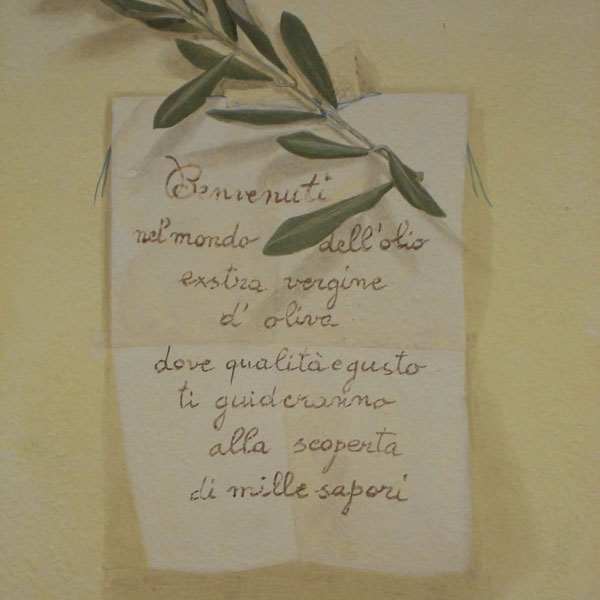 Benvenuti
nel mondo dell'olio
exstra vergine
d' oliva
dove qualità e gusto
ti guideranno
alla scoperta
di mille sapori